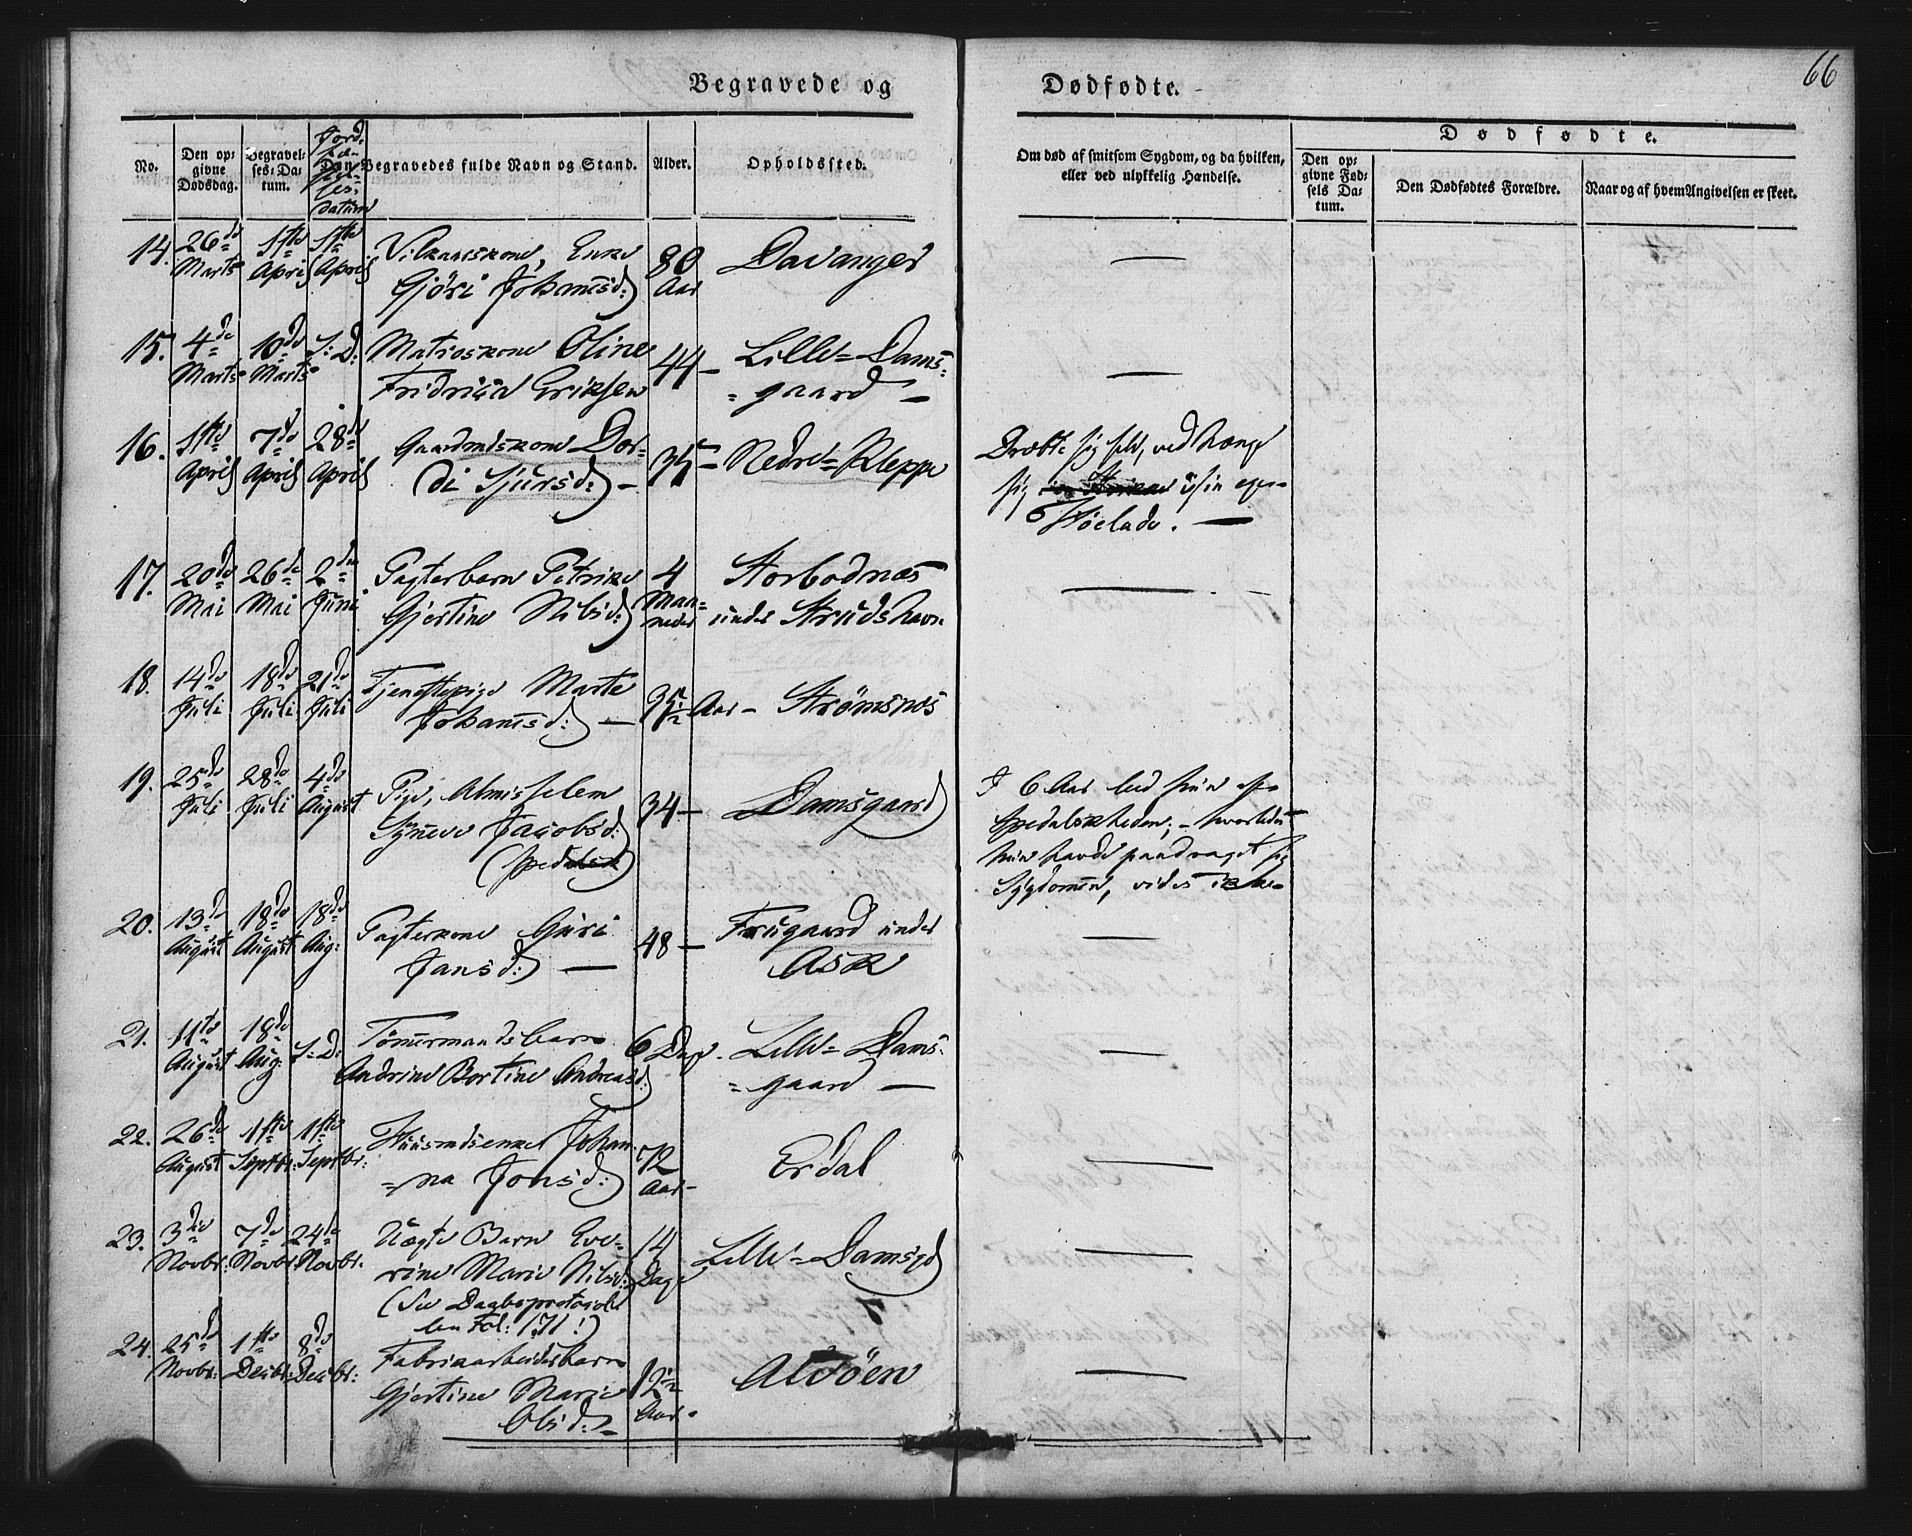 66
Begravede og Dødfødte.
No.
Den opgivne Dødsdag.
Begravelses-Datum.
Jordfæstelsesdatum
Den Begravedes fulde Navn og Stand.
Alder.
Opholdssted.
Om død af smitsom Sygdom, og da hvilken,
eller ved ulykkelig Hændelse.
Dødfødte.
Den opgivne Fødsels Datum.
Den Dødfødtes Forældre.
Naar og af hvem Angivelsen er skeet.
14. 26de Marts 1ste April 1ste April
Vilkaarskone, Enke
Gjøri Johannesd:
80 Aar
Davanger
—
15. 4de Marts 10de Marts S: D:
Matroskone Oline
Fridrica Eriksen
44 —
Lille-Dams-
gaard —
—
16. 1ste April 7de April 28de April
Gaardmdskone Dor-
di Sjursd: —
35 —
Nedre-Kleppe
Dræbte sig selv, ved hænge
sig i sin egen
Høelade. —
17. 20de Mai 26de Mai 2den Juni
Pagterbarn Petrike
Gjertine Nilsd:
4 Maaneder
Storbodnæs
under Strudshavn
—
18. 14de Juli 18de Juli 21de Juli
Tjenestepige Marte
Johannesd: —
35 1/2 Aar —
Strømsnæs
19. 25de Juli 28de Juli 4de August
Pige, Almisselem
Synneve Jacobsd:
(spedalsk)
34 —
Damsgaard
I 6 Aar led hun af
Spedalskheden; — hvorledes
hun havde paadraget sig
Sygdommen, vides ikke —
20. 13de August 18de August 18de Aug:
Pagterkone Guri
Jansd: —
48 —
Frugaard under
Ask
—
21. 11te August 18de Aug: S: D:
Tømmermandsbarn
Andrine Bortine Andreasd:
6 Dage
Lille-Dams-
gaard —
—
22. 26de August 1ste Septbr: 1ste Septbr:
Huusmdsenke Johan-
na Jonsd:
72 Aar —
Erdal
—
23. 3die Novbr: 7de Novbr: 24de Novbr:
Uægte Barn Eve-
rine Marie Nilsd:
(See Daabsprotocol-
len Fol: 171!)
14 Dage
Lille-Damsgd
—
24. 25de Novbr: 1ste Decbr: 8de Decbr:
Fabrikarbeidsbarn
Gjertine Marie
Olsd: —
12 1/2 Aar
Alvøen
—